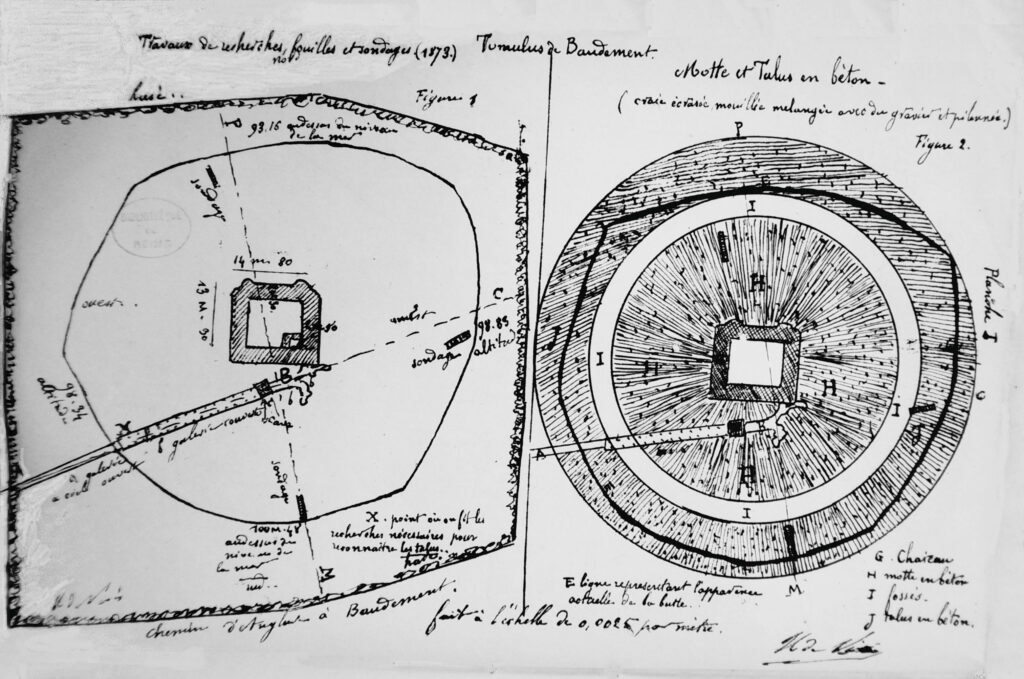 Travaux de recherches, fouilles et sondages (1873.) Tumulus de Baudement.
Figure 1
93.16 audessus du niveau
de la mer
sondage
14 m. 80
13 M. 90
ouest
C
98.83
altitude
sondage
B
98.94
altitude
X
galerie couverte
galerie
a ciel ouvert
sondage
100 M. 48
audessus du
niveau de
la mer
sud
M
X. point où on fit les
recherches nécessaires pour
reconnaître les talus.
chemin d'Anglure à Baudement.
fait à l'échelle de 0,0025 par mètre.
Motte et Talus en béton -
(craie écrasée mouillée melangée avec du gravier et pilonnée.)
Figure 2.
P
I
H
H
H
H
I
I
I
J
J
A
M
Planche I
E ligne representant l'apparence
actuelle de la butte.
G. Chateau
H motte en béton
I fossés.
J talus en béton.